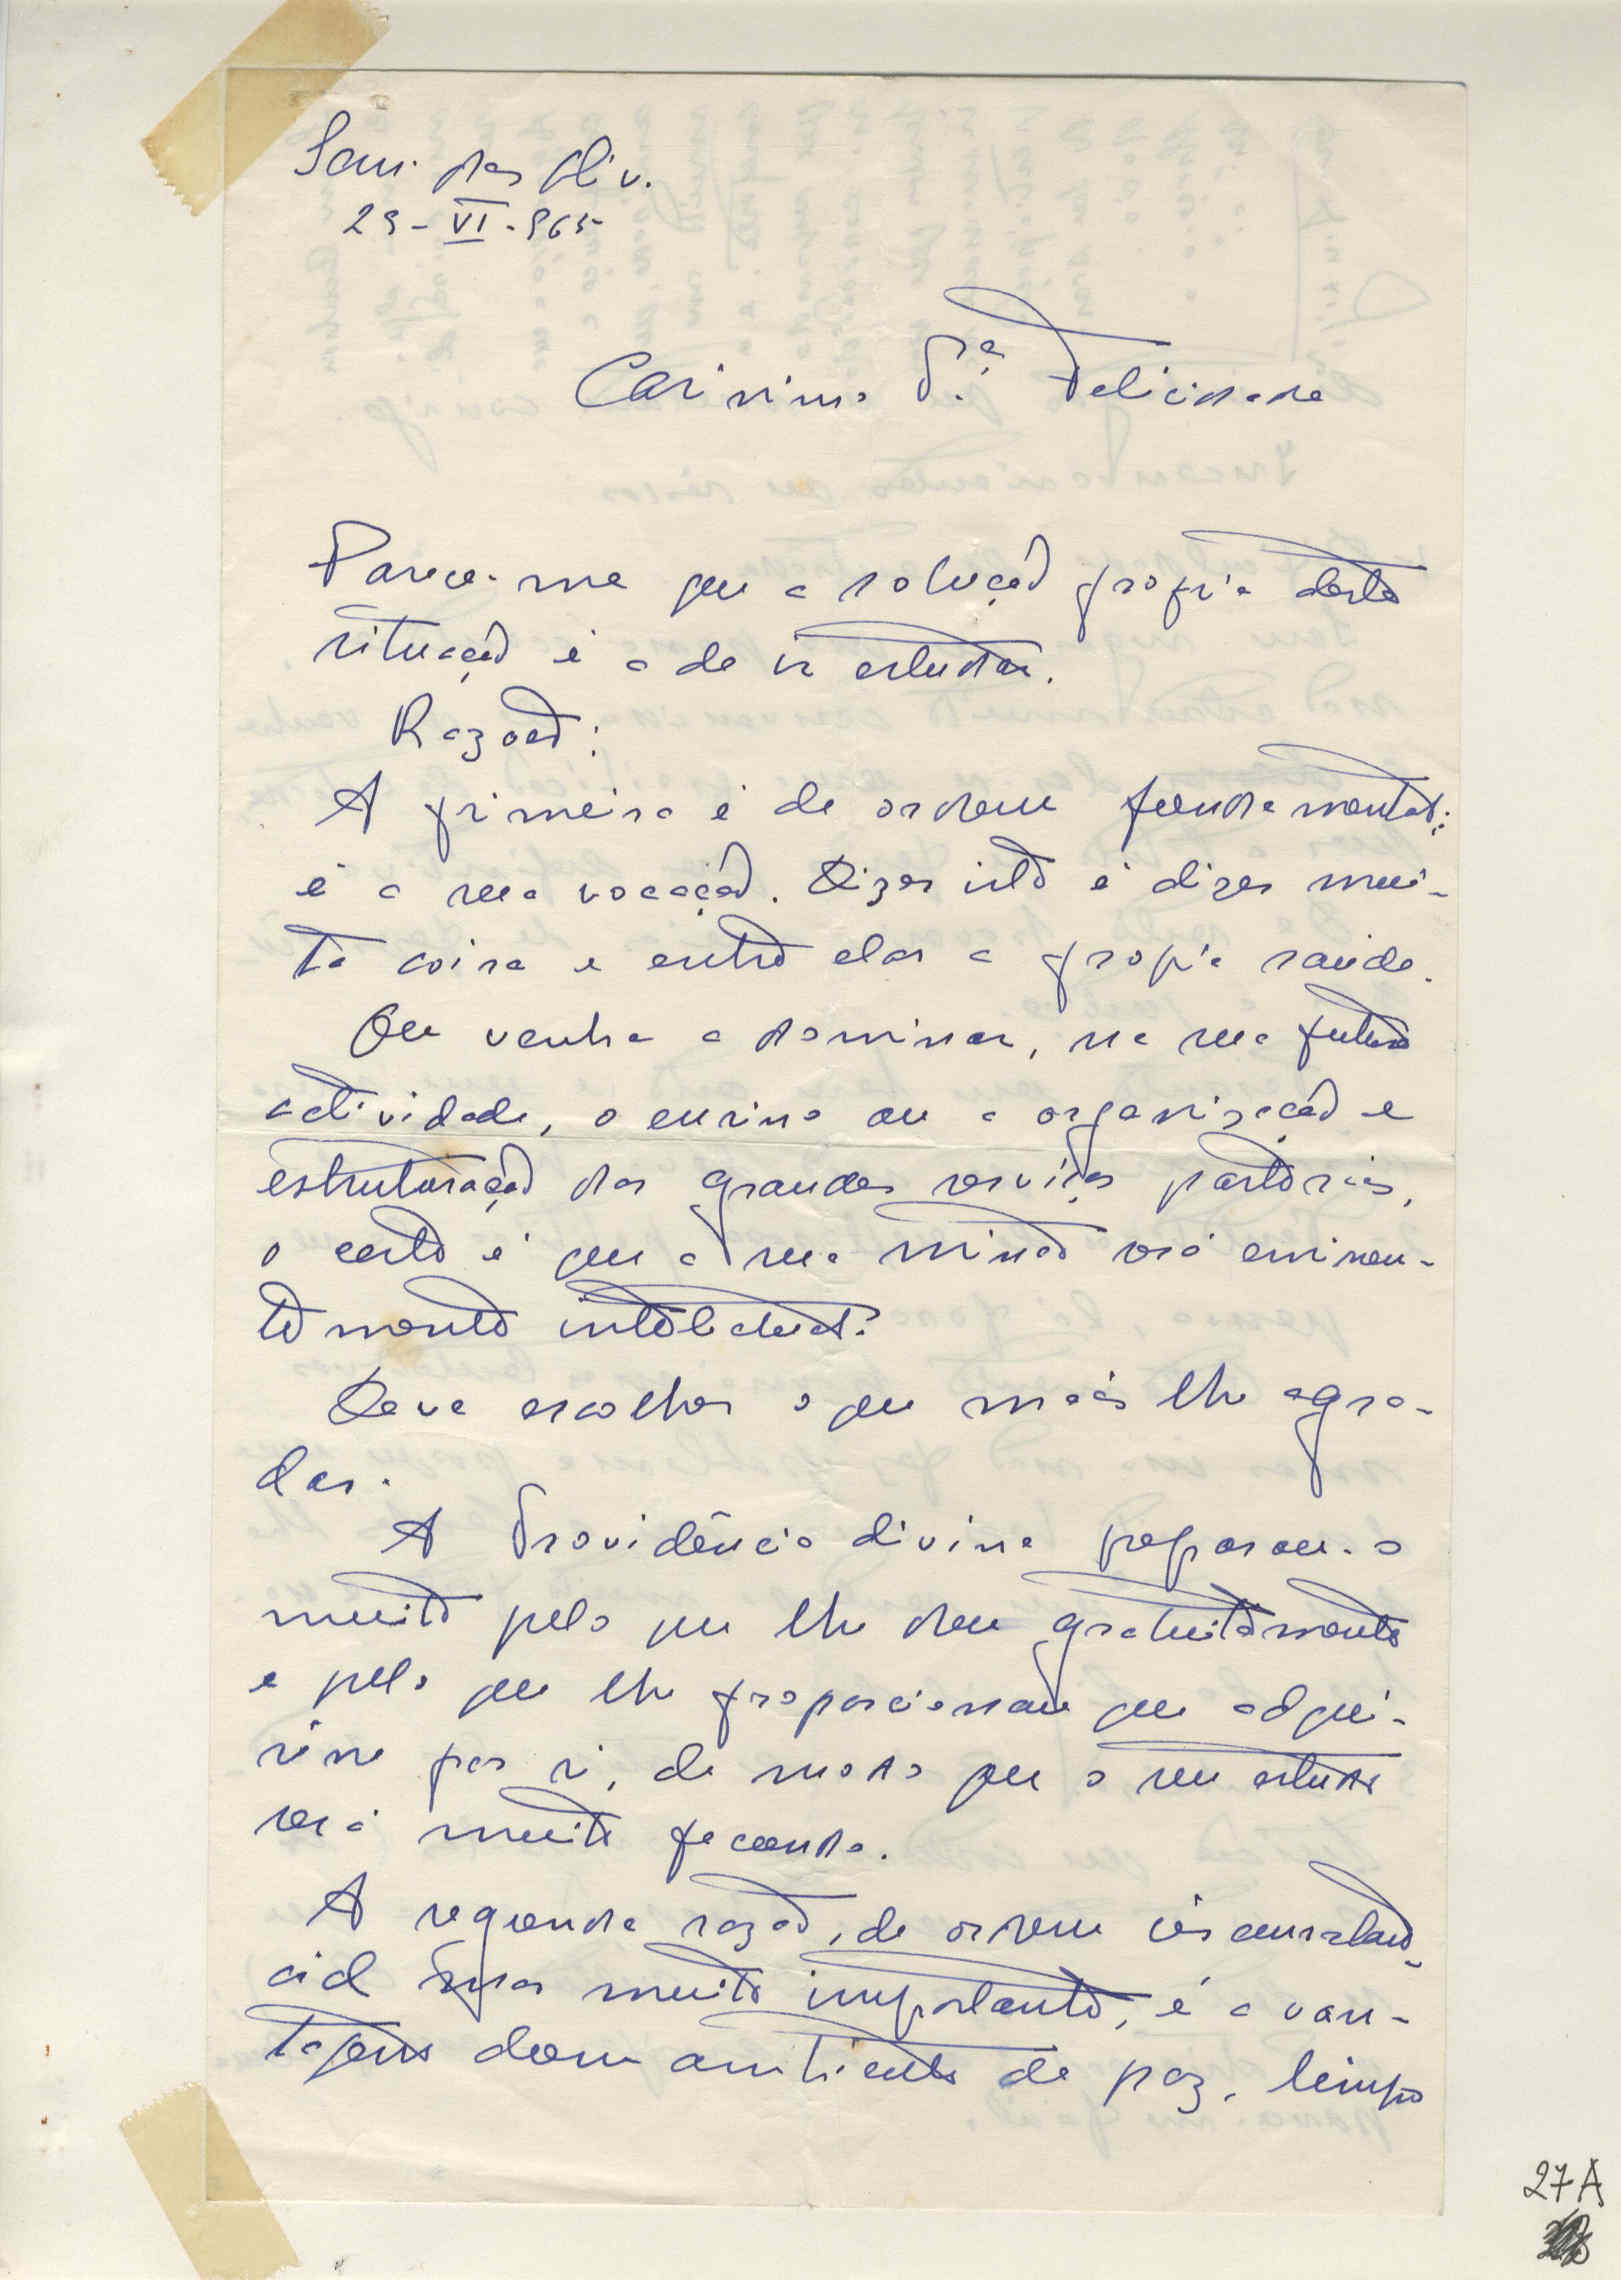 Sem. dos Oliv.
29-VI-965
Caríssimo P.e Felicidade
Parece-me que a solução propria desta
situação é a de ir estudar.
Razões:
A primeira é de ordem fundamental:
é a sua vocação. Dizer isto é dizer mui-
ta coisa e entre elas a propria saúde.
Ou venha a dominar, na sua futura
actividade, o ensino ou a organização e
estruturação dos grandes serviços pastorais,
o certo é que a sua missão será eminen-
temente intelectual.
Deve escolher o que mais lhe agra-
dar.
A Providência divina preparou-o
muito pelo que lhe deu gratuitamente
e pelo que lhe proporcionou que adqui-
risse por si, de modo que o seu estudo
será muito fecundo.
A segunda razão, de ordem circunstan-
cial mas muito importante, é a van-
tagem dum ambiente de paz, limpo
27A